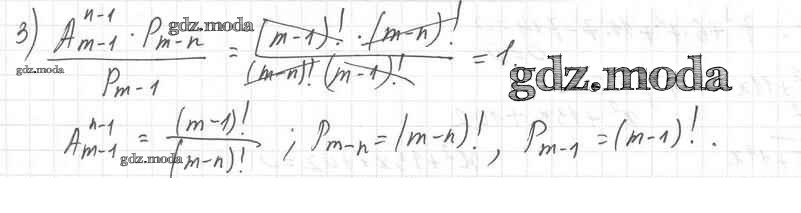 3) (A_{m-1}^{n-1} · P_{m-n}) / P_{m-1} = ((m-1)! · (m-n)!) / ((m-n)! (m-1)!) = 1.
A_{m-1}^{n-1} = (m-1)! / (m-n)! ; P_{m-n} = (m-n)! , P_{m-1} = (m-1)! .
gdz.moda
gdz.moda
gdz.moda
gdz.moda